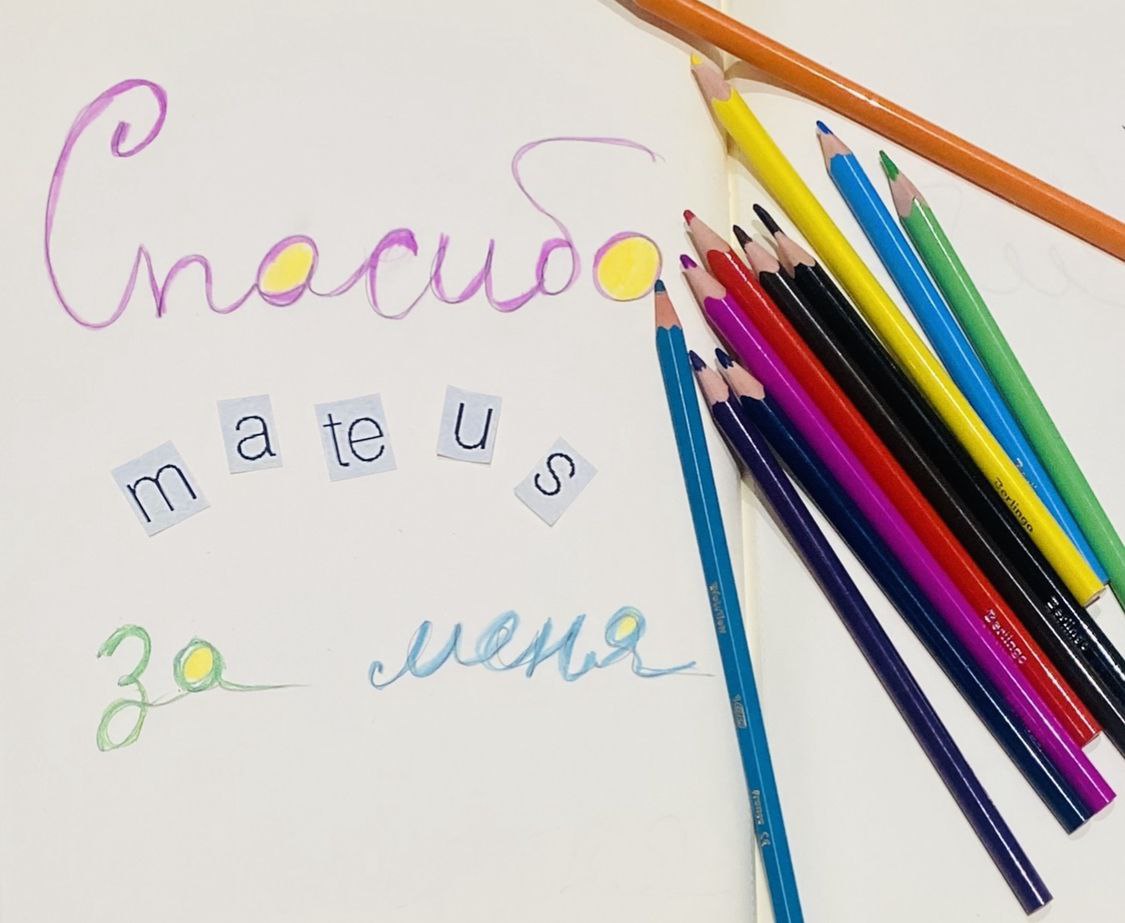 Спасибо
mateus
за меня
Berlingo
Berlingo
Berlingo